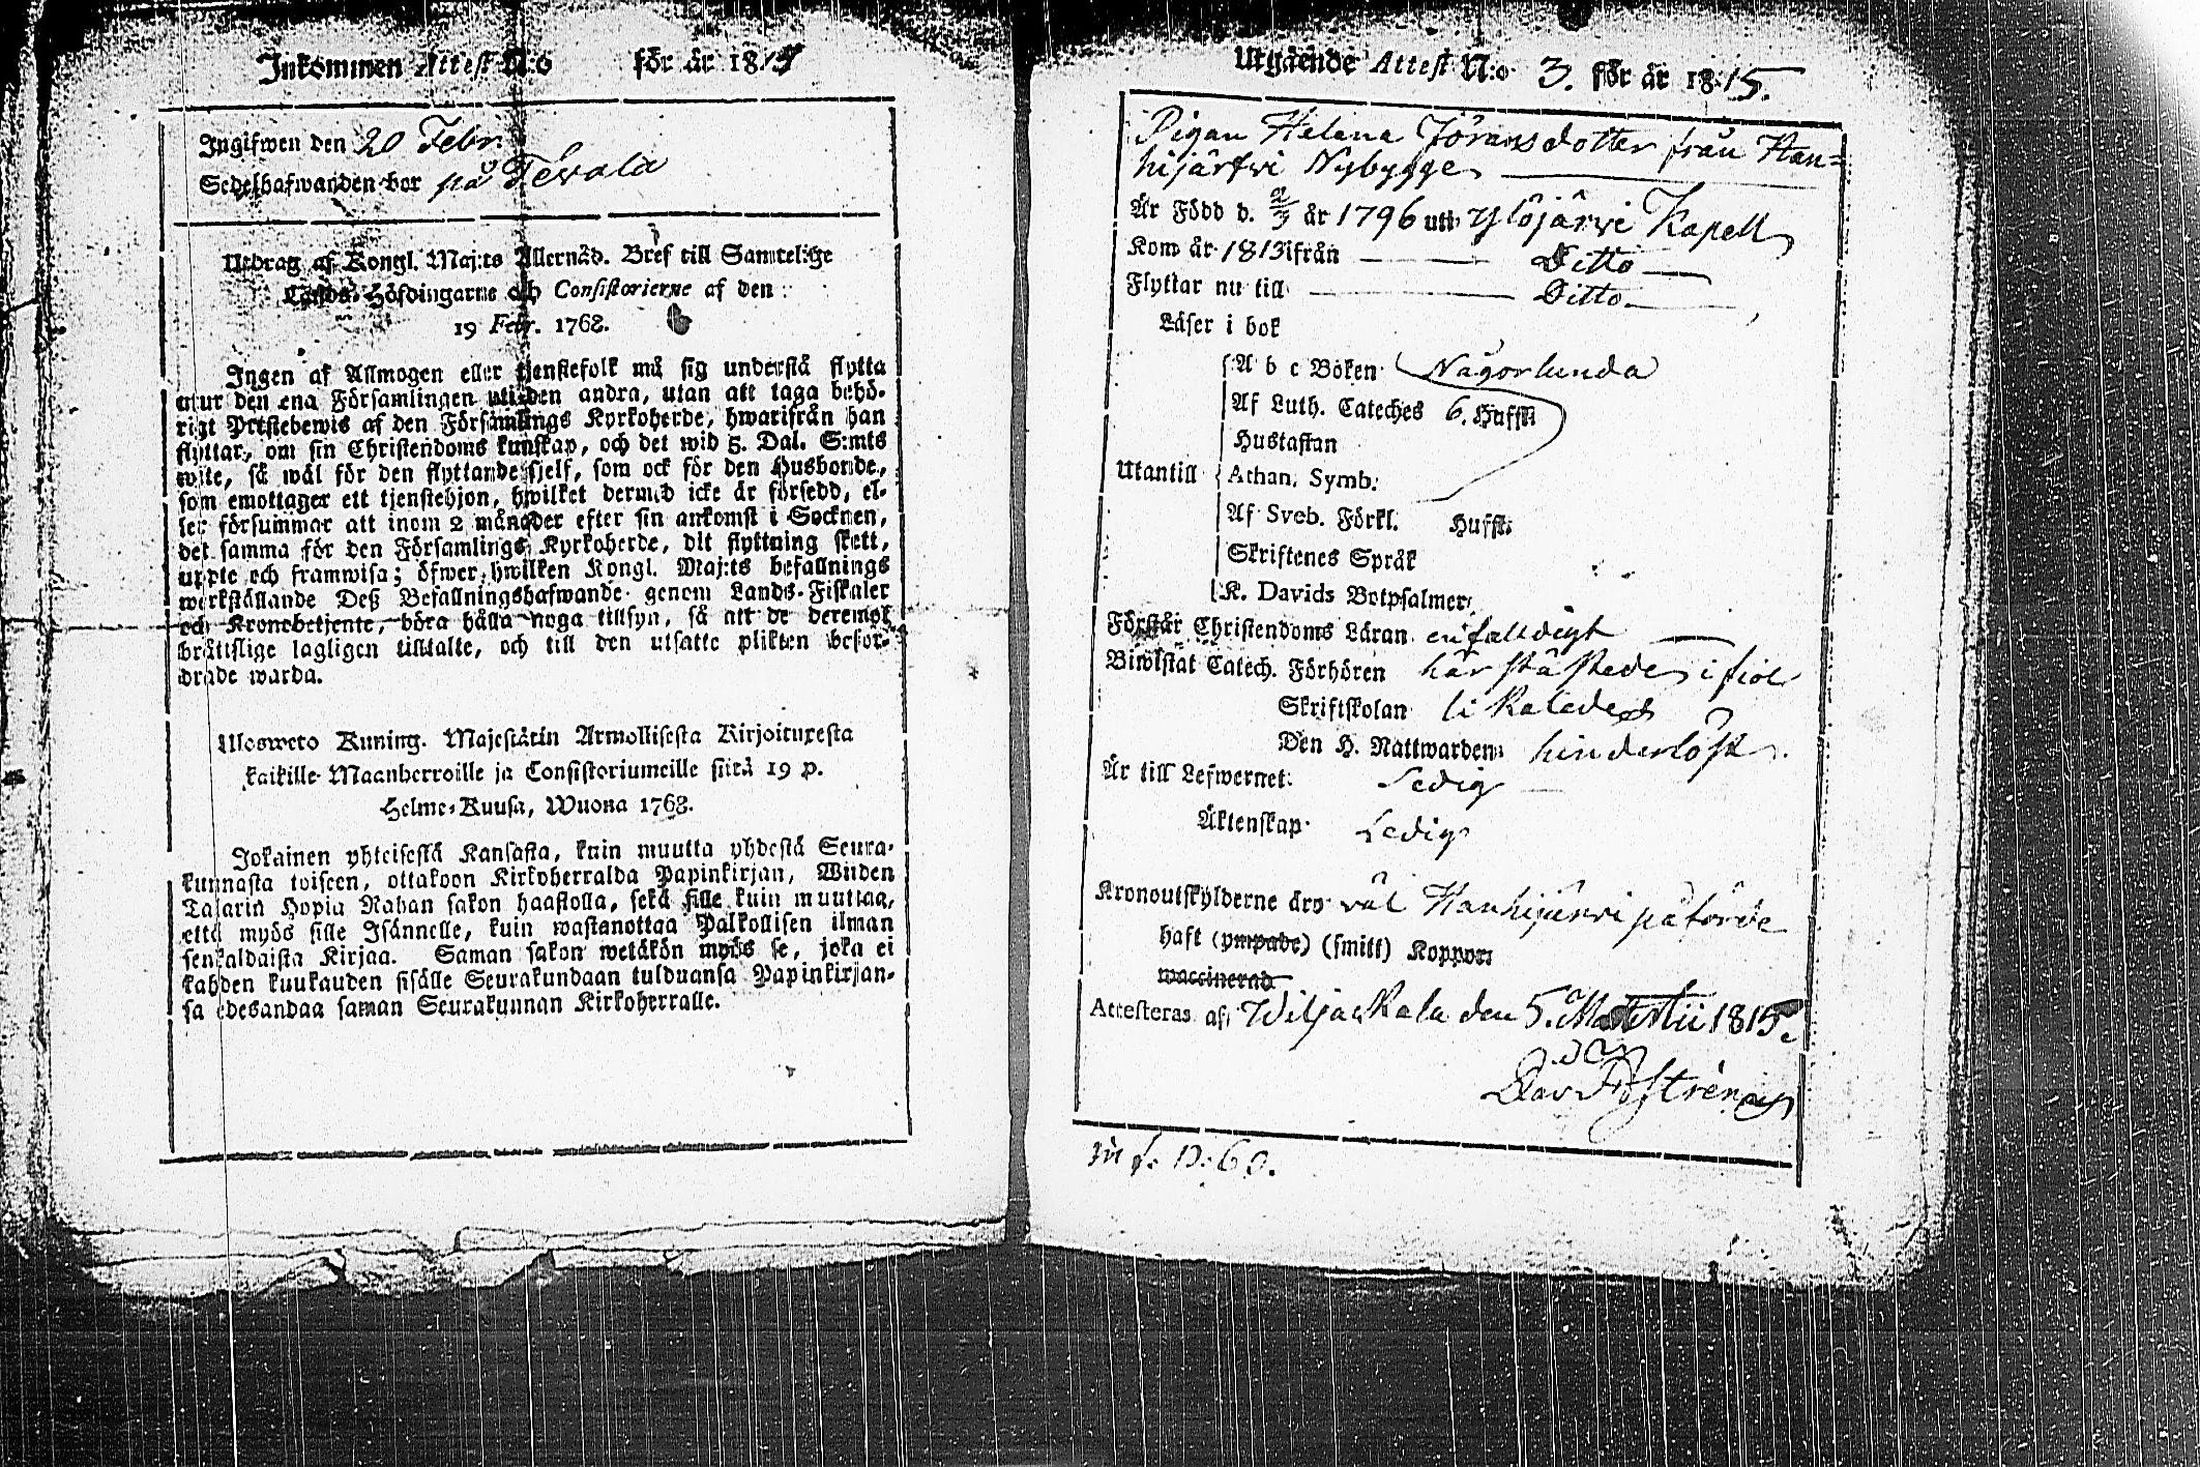 Inkommen Attest N:o för år 1815
Ingifwen den 20 Febr.
Sedelhafwanden bor på Tevala
Utdrag af Kongl. Maj:ts Allernåd. Bref till Samtelige
Lands-Höfdingarne och Consistorierne af den
19 Febr. 1768.
Ingen af Allmogen eller tjenstefolk må sig understå flytta
utur den ena Församlingen uti den andra, utan att taga behö-
rigt Prestebewis af den Församlings Kyrkoherde, hwarifrån han
flyttar, om sin Christendoms kunskap, och det wid 5. Dal. S:mts
wite, så wäl för den flyttande sjelf, som ock för den Husbonde,
som emottager ett tjenstehjon, hwilket dermed icke är försedd, el-
ler försummar att inom 2 månader efter sin ankomst i Socknen,
det samma för den Församlings Kyrkoherde, dit flyttning skett,
uppte och framwisa; öfwer hwilken Kongl. Maj:ts befallnings
werkställande Deß Befallningshafwande genom Lands-Fiskaler
och Kronobetjente, böra hålla noga tillsyn, så att de deremot
bråttslige lagligen tilltalte, och till den utsatte plikten beför-
drade warda.
Ulosweto Kuning. Majestätin Armollisesta Kirjoituxesta
kaikille Maanherroille ja Consistoriumeille siitä 19 p.
Helme-Kuusa, Wuona 1768.
Jokainen yhteisestä Kansasta, kuin muutta yhdestä Seura-
kunnasta toiseen, ottakoon Kirkoherralda Papinkirjan, Wiiden
Talarin Hopia Rahan sakon haastolla, sekä sille kuin muuttaa,
että myös sille Isännelle, kuin wastanottaa Palkollisen ilman
senkaldaista Kirjaa. Saman sakon wetäkön myös se, joka ei
kahden kuukauden sisälle Seurakundaan tulduansa Papinkirjan-
sa edesandaa saman Seurakunnan Kirkoherralle.
Utgående Attest N:o 3. för år 1815.
Pigan Helena Jöransdotter från Han-
hijärfwi Nybygge
Är Född d. 2/3 år 1796 uti Ylöjärwi Kapell
Kom år 1813 ifrån Ditto
Flyttar nu till Ditto
Läser i bok
A b c Boken Någorlunda
Af Luth. Cateches 6. Hufst.
Hustaflan
Utantill Athan. Symb.
Af Sveb. Förkl. Hufst.
Skriftenes Språk
K. Davids Botpsalmer
Förstår Christendoms Läran enfalldigt
Biwistat Catech. Förhören här städes i fiol
Skriftskolan likaledes
Den H. Nattwarden hinderlöst.
Är till Lefwernet Sedig
Äktenskap Ledig
Kronoutskylderne äro väl Hanhijärwi påförde
haft (ympade) (smitt) Koppor
waccinerad
Attesteras af Wiljackala den 5. Martii 1815.